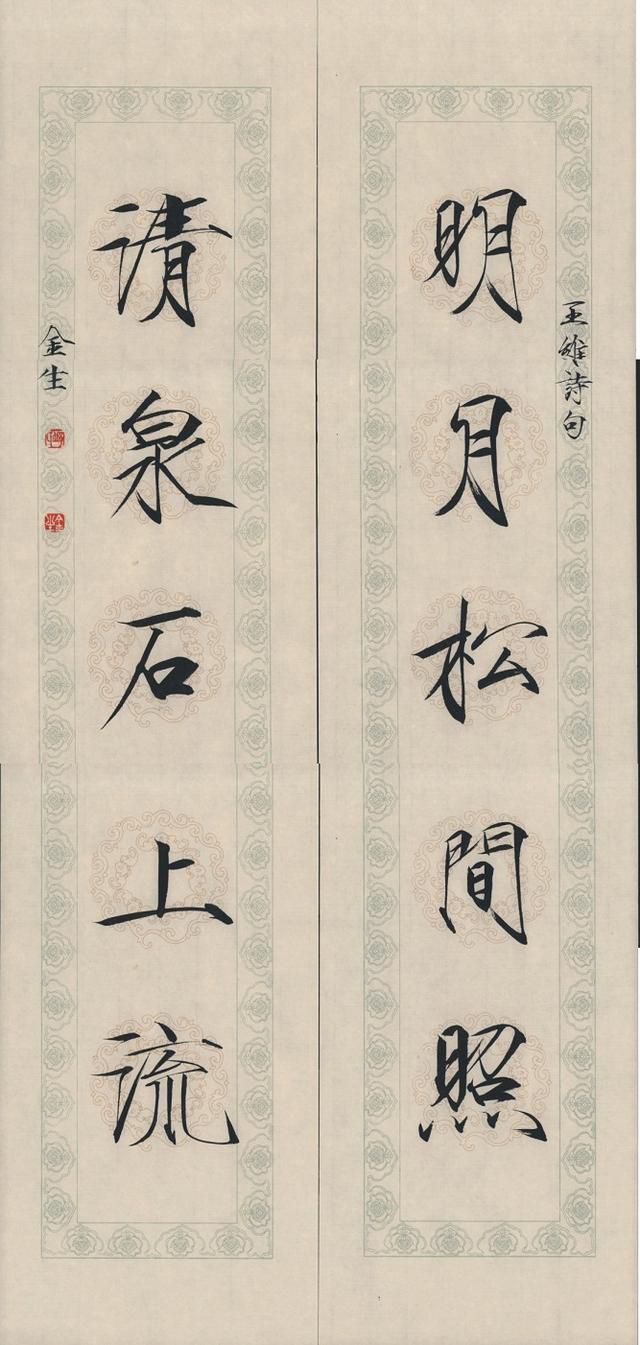 王維詩句
明月松間照
清泉石上流
金生